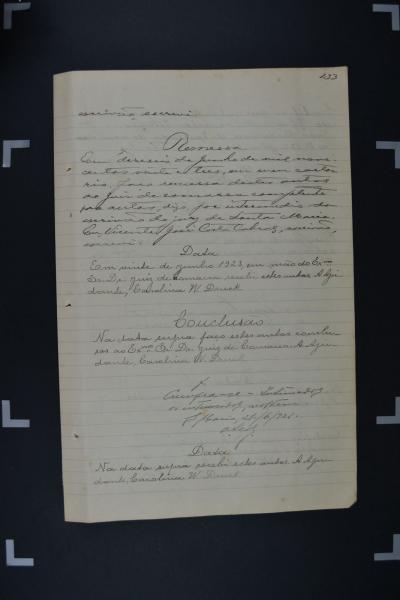 133
escrivão, escrevi
Remessa
Em dezeseis de Junho de mil nove-
centos vinte e tres, em meu carto-
rio, faço remessa destes autos
ao Juiz da comarca competente
por autos, digo, por intermedio do
escrivão do jury de Santa Maria.
Eu, Vicente José Costa Cabral, escrivão,
escrevi.
Data
Em vinte de junho 1923, em mão do Exmo
Sr. Dr. juiz de comarca recebi estes autos. A Aju-
dante, Carolina W. Druck
Conclusão
Na data supra faço estes autos conclu-
sos ao Exmo Sr. Dr. Juiz de Comarca. A Aju-
dante, Carolina W. Druck
Cumpra-se – Intimados
os interessados,
S. Maria, 20/6/923.
Data
Na data supra recebi estes autos. A Aju-
dante, Carolina W. Druck